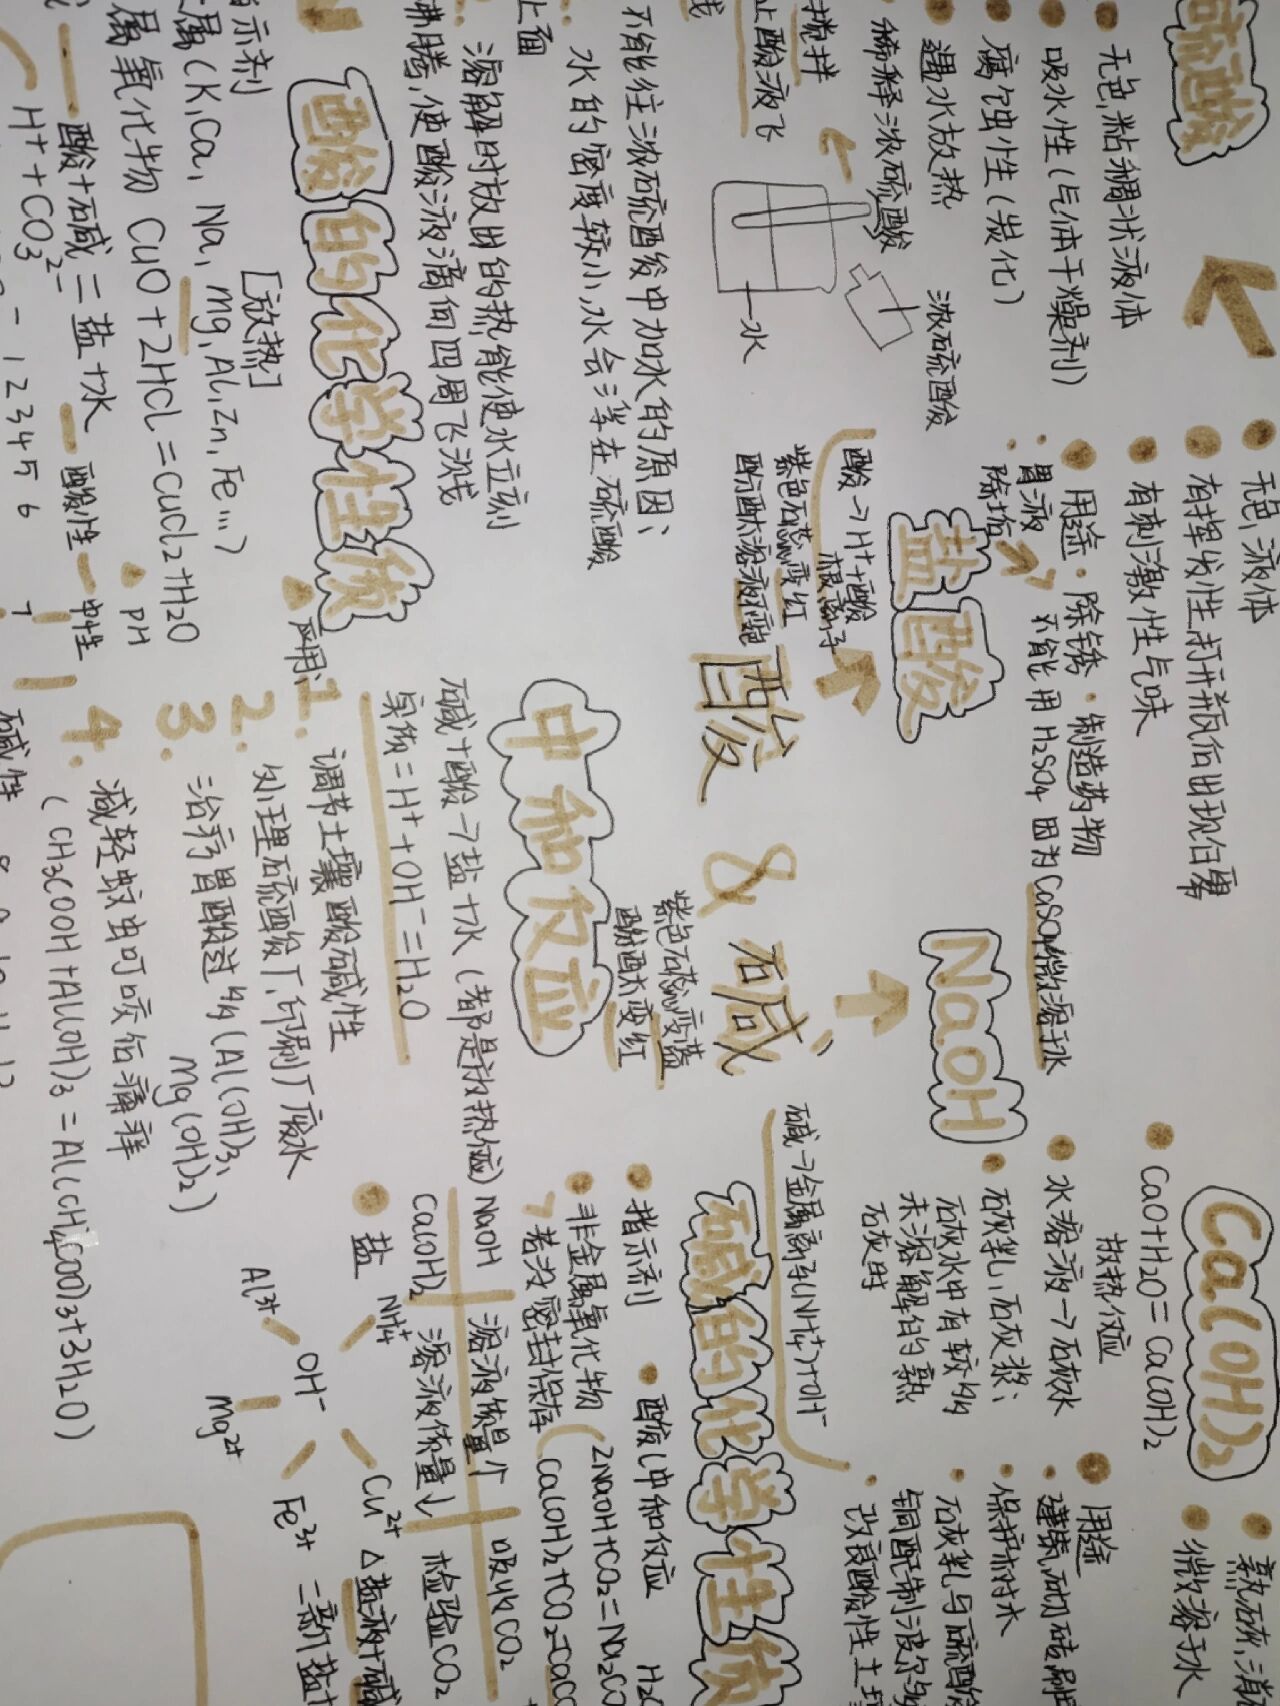 硫酸
无色,粘稠状液体
吸水性(气体干燥剂)
腐蚀性(炭化)
遇水放热
稀释浓硫酸
浓硫酸
水
搅拌
止酸液飞
不能往浓硫酸中加水的原因:
水的密度较小,水会浮在硫酸
上面
溶解时放出的热能使水立刻
沸腾,使酸液滴向四周飞溅
酸的化学性质
指示剂
[放热]
属(K,Ca,Na,Mg,Al,Zn,Fe…)
属氧化物 CuO+2HCl=CuCl2+H2O
酸+碱=盐+水
H⁺+CO3²⁻
pH
酸性 中性 碱性
1 2 3 4 5 6 7
盐酸
无色,液体
有挥发性,打开瓶后出现白雾
有刺激性气味
用途·除锈·制造药物
胃液
除垢 不能用H2SO4因为CaSO4微溶于水
酸→H⁺+酸
根离子
紫色石蕊变红
酚酞溶液
酸 & 碱
紫色石蕊变蓝
酚酞变红
中和反应
碱+酸→盐+水(都是放热反应)
实质=H⁺+OH⁻=H2O
应用:
1. 调节土壤酸碱性
2. 处理硫酸厂,印刷厂废水
3. 治疗胃酸过多(Al(OH)3、
Mg(OH)2)
4. 减轻蚊虫叮咬后痛痒
(CH3COOH+Al(OH)3=Al(CH3COO)3+3H2O)
NaOH
碱→金属离子(NH4⁺)+OH⁻
Ca(OH)2
CaO+H2O=Ca(OH)2
放热反应
水溶液→石灰水
石灰乳,石灰浆:
石灰水中有较多
未溶解的熟
石灰时
熟石灰,消
微溶于水
用途
建筑,砌砖
保护树木
石灰乳与硫酸
铜配制波尔多
改良酸性土壤
碱的化学性质
指示剂
酸(中和反应
非金属氧化物
若没密封保存
2NaOH+CO2=Na2CO
Ca(OH)2+CO2=CaCO
NaOH 溶液质量↑ 吸收CO2
Ca(OH)2 溶液质量↓ 检验CO2
盐
NH4⁺
Al³⁺
OH⁻
Mg²⁺
Cu²⁺
Fe³⁺
△盐液+碱
=新盐+